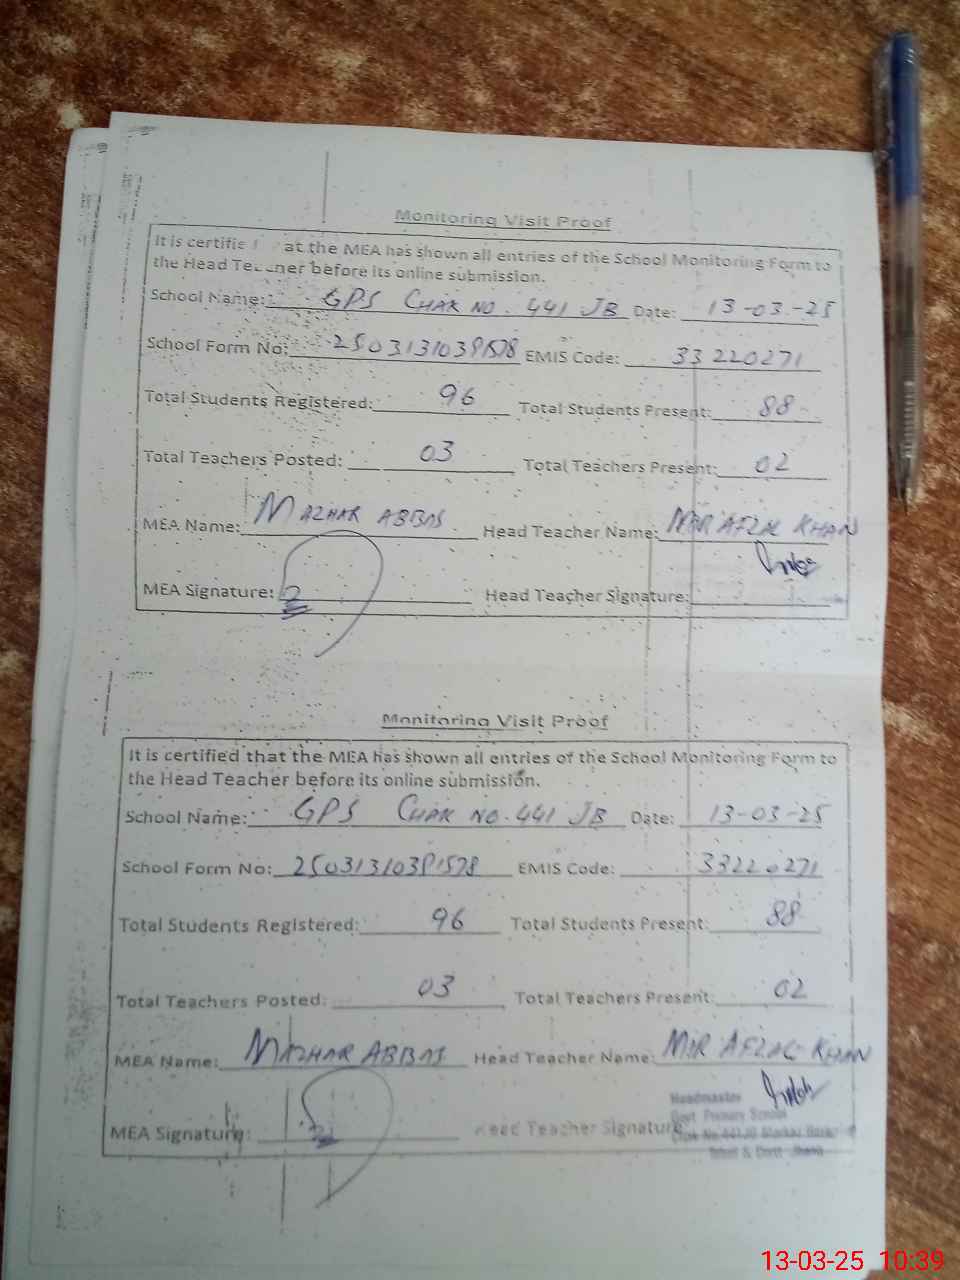 Monitoring Visit Proof
It is certifie at the MEA has shown all entries of the School Monitoring Form to
the Head Teacher before its online submission.
School Name: GPS CHAK NO. 441 JB Date: 13-03-25
School Form No: EMIS Code: 33220271
Total Students Registered: 96 Total Students Present: 88
Total Teachers Posted: 03 Total Teachers Present: 02
MEA Name: MAZHAR ABBAS Head Teacher Name: MIR AFZAL KHAN
MEA Signature: Head Teacher Signature:
Monitoring Visit Proof
It is certified that the MEA has shown all entries of the School Monitoring Form to
the Head Teacher before its online submission.
School Name: GPS CHAK NO. 441 JB Date: 13-03-25
School Form No: EMIS Code: 33220271
Total Students Registered: 96 Total Students Present: 88
Total Teachers Posted: 03 Total Teachers Present: 02
MEA Name: MAZHAR ABBAS Head Teacher Name: MIR AFZAL KHAN
Headmaster
Govt. Primary School
MEA Signature: Head Teacher Signature:
Chak No. 441 JB Markaz
Tehsil & Distt. Jhang
13-03-25 10:39